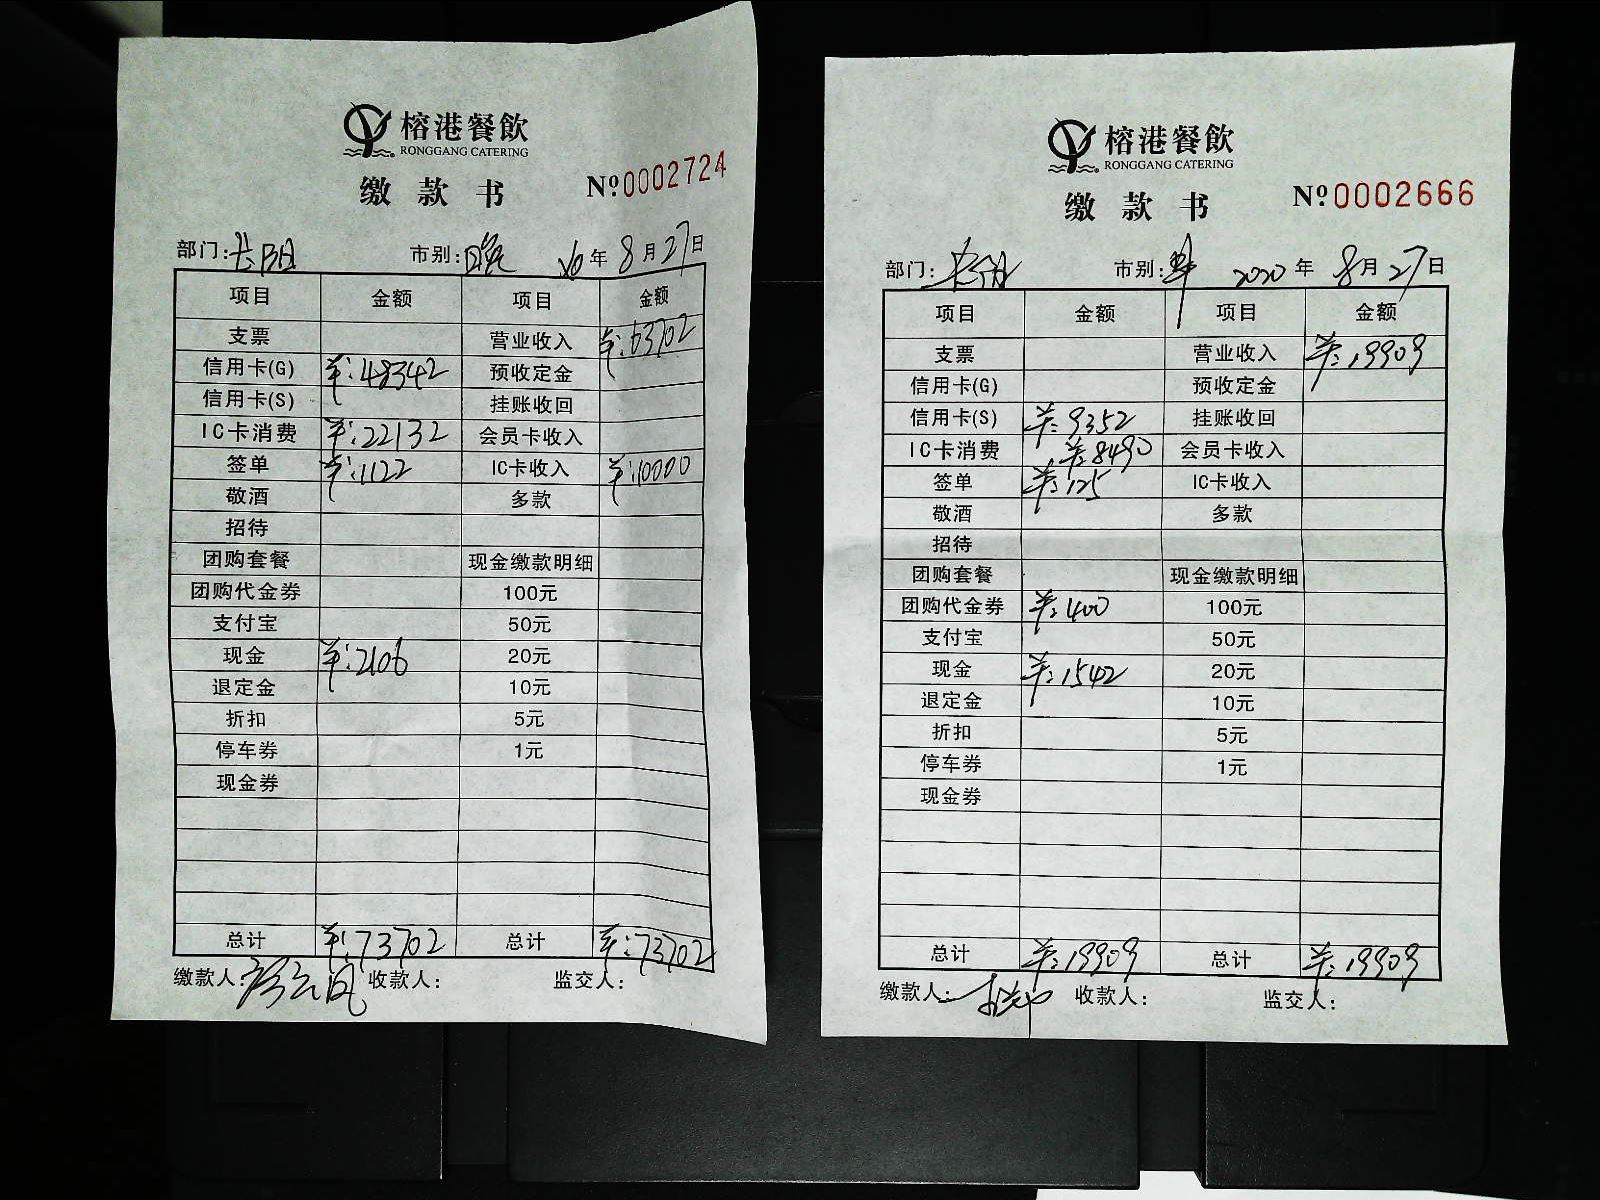 榕港餐飲
RONGGANG CATERING
缴款书 Nº0002724
部门: 市别:晚 年8月27日
项目 金额 项目 金额
支票 营业收入 ¥:63702
信用卡(G) ¥:48342 预收定金
信用卡(S) 挂账收回
IC卡消费 ¥:22132 会员卡收入
签单 ¥:1122 IC卡收入 ¥:10000
敬酒 多款
招待
团购套餐 现金缴款明细
团购代金券 100元
支付宝 50元
现金 ¥:2106 20元
退定金 10元
折扣 5元
停车券 1元
现金券
总计 ¥:73702 总计 ¥:73702
缴款人: 收款人: 监交人:
榕港餐飲
RONGGANG CATERING
缴款书 Nº0002666
部门: 市别: 2020年8月27日
项目 金额 项目 金额
支票 营业收入 ¥:19909
信用卡(G) 预收定金
信用卡(S) ¥:9352 挂账收回
IC卡消费 ¥:8490 会员卡收入
签单 ¥:125 IC卡收入
敬酒 多款
招待
团购套餐 现金缴款明细
团购代金券 ¥:400 100元
支付宝 50元
现金 ¥:1542 20元
退定金 10元
折扣 5元
停车券 1元
现金券
总计 ¥:19909 总计 ¥:19909
缴款人: 收款人: 监交人: